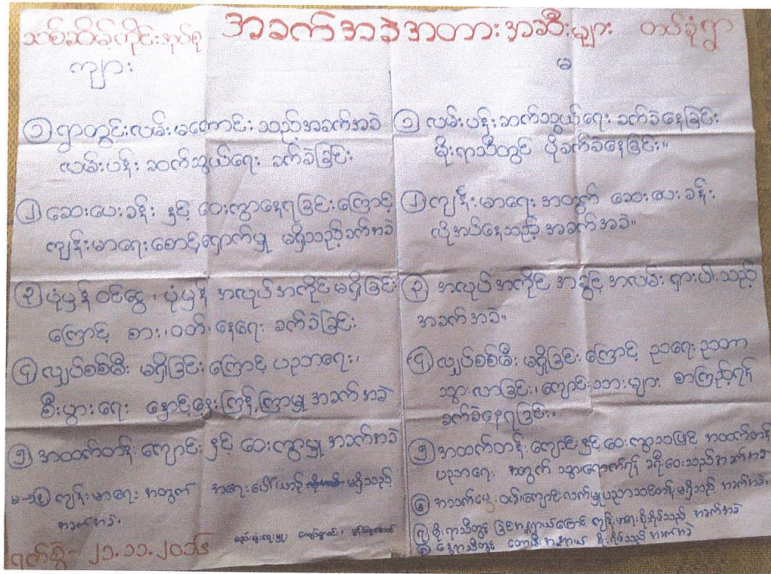 အခက်အခဲအတားအဆီးများ
ကျား
၁ ရွာတွင်းလမ်းမကောင်းသည့်အခက်အခဲ
လမ်းပန်းဆက်သွယ်ရေး ခက်ခဲခြင်း
၂ ဆေးပေးခန်း နှင့် ဝေးကွာနေရခြင်းကြောင့်
ကျန်းမာရေးစောင့်ရှောက်မှု မရှိသည့်ခက်အခဲ
၃ ပုံမှန်ဝင်ငွေ၊ ပုံမှန် အလုပ်အကိုင်မရှိခြင်း
ကြောင့် စား၊ဝတ်၊နေရေး ခက်ခဲခြင်း
၄ လျှပ်စစ်မီး မရှိခြင်းကြောင့် ပညာရေး၊
စီးပွားရေး နှောင့်နှေးကြန့်ကြာမှု အခက်အခဲ
၅ အထက်တန်းကျောင်း နှင့် ဝေးကွာမှု အခက်အခဲ
ကျန်းမာရေး အတွက် အရေးပေါ်ယာဉ် မရှိသည့်
အခက်အခဲ၊
ရက်စွဲ - ၂၁.၁၁.၂၀၁၆
မ
၁ လမ်းပန်းဆက်သွယ်ရေး ခက်ခဲနေခြင်း
မိုးရာသီတွင် ပိုခက်ခဲနေခြင်း။
၂ ကျန်းမာရေး အတွက် ဆေးပေးခန်း
လိုအပ်နေသည့် အခက်အခဲ။
၃ အလုပ်အကိုင် အခွင့်အလမ်း ရှားပါးသည့်
အခက်အခဲ။
၄ လျှပ်စစ်မီး မရှိခြင်းကြောင့် ညရေးညတာ
သွားလာခြင်း၊ ကျောင်းသားများ စာကြည့်ရန်
ခက်ခဲနေရခြင်း၊
၅ အထက်တန်းကျောင်းနှင့်ဝေးကွာသဖြင့် အထက်တန်း
ပညာရေး အတွက် သွားရောက်ရန် ခရီးဝေးသည့်အခက်အခဲ
၆ အသက်မွေးဝမ်းကျောင်းလက်မှုပညာသင်တန်းမရှိသည့် အခက်အခဲ